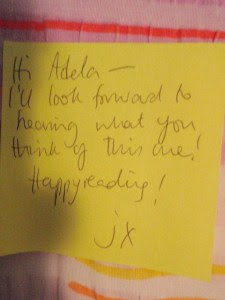 Hi Adela —
I'll look forward to
hearing what you
think of this one!
Happy reading!
jx